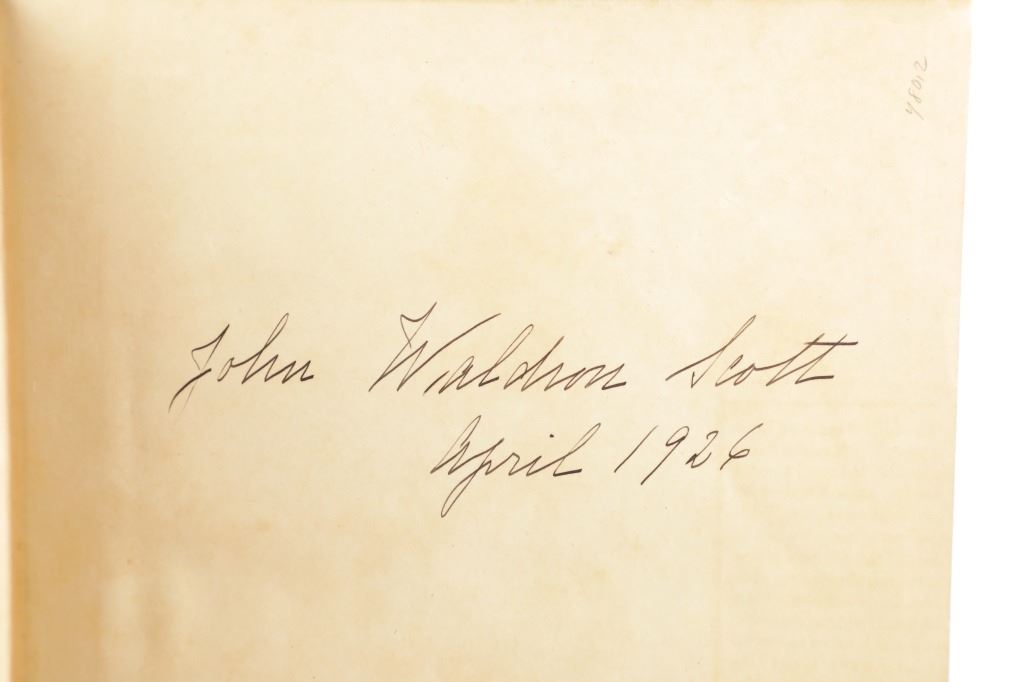 John Waldron Scott
April 1926